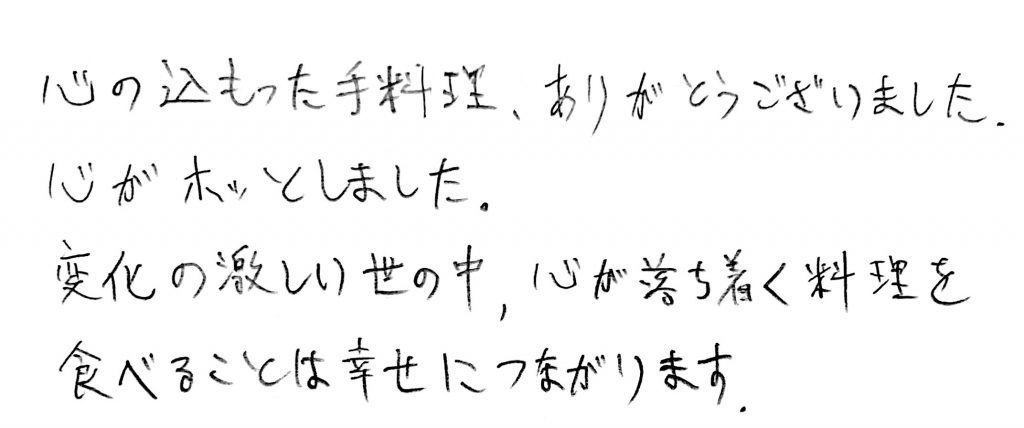 心の込もった手料理、ありがとうございました.
心がホッとしました。
変化の激しい世の中,心が落ち着く料理を
食べることは幸せにつながります.